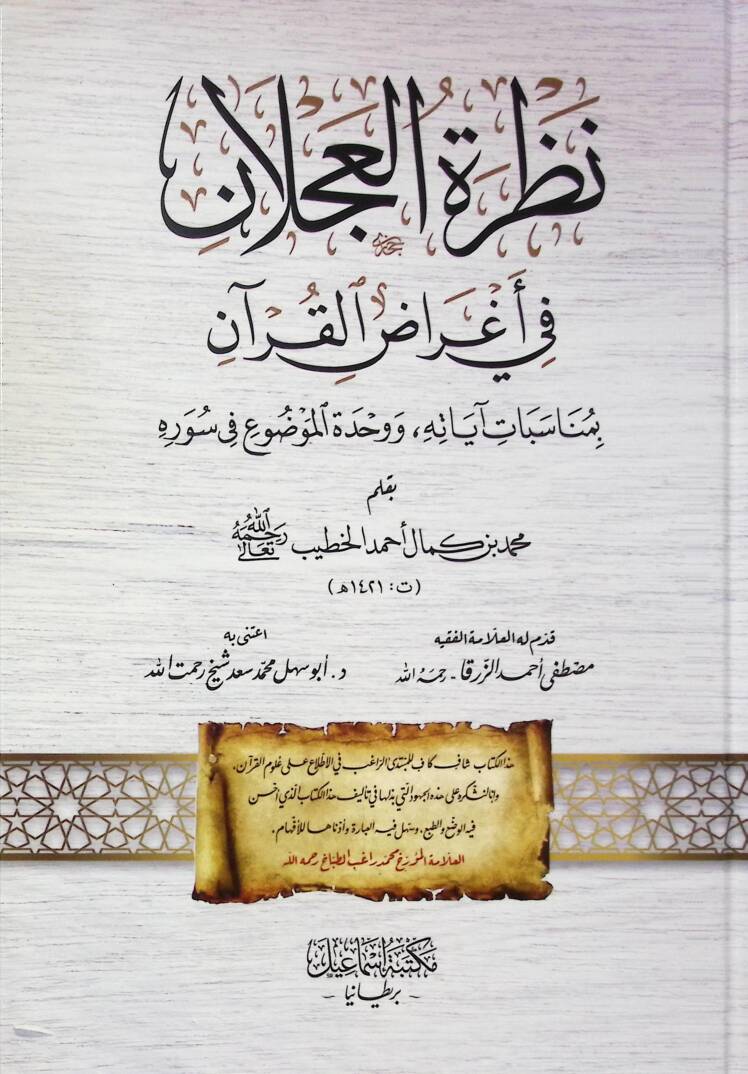 نَظْرَةُ العَجْلَانِ
فِي أَغْرَاضِ القُرْآنِ
بِمُنَاسَبَاتِ آيَاتِهِ، وَوَحْدَةِ المَوْضُوعِ فِي سُوَرِهِ
بقلم
محمد بن كمال أحمد الخطيب رحمه الله تعالى
(ت: ١٤٢١هـ)
قدّم له العلّامة الفقيه
مصطفى أحمد الزّرقا - رحمهُ الله
اعتنى به
د. أبو سهل محمّد سعد شيخ رحمت الله
هذا الكتاب شافٍ كافٍ للمبتدئ الراغب في الاطّلاع على علوم القرآن،
وإنا لنشكره على هذه الجهود التي بذلها في تأليف هذا الكتاب الذي أحسن
فيه الوضع والطبع، وسهّل فيه العبارة وأدناها للأفهام.
العلامة المؤرخ محمد راغب الطباخ رحمه الله
مكتبة إسماعيل
- بريطانيا -